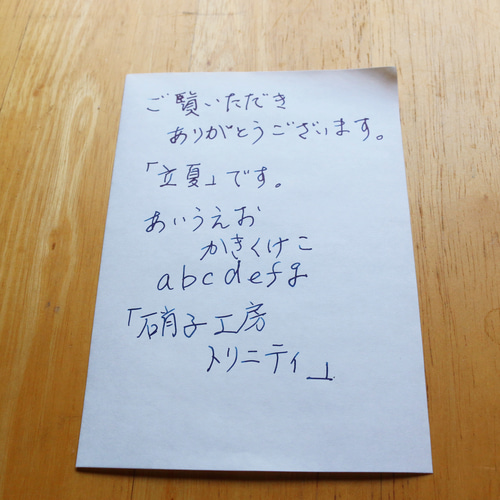 ご覧いただき
ありがとうございます。
「立夏」です。
あいうえお
かきくけこ
abcdefg
「硝子工房
トリニティ」